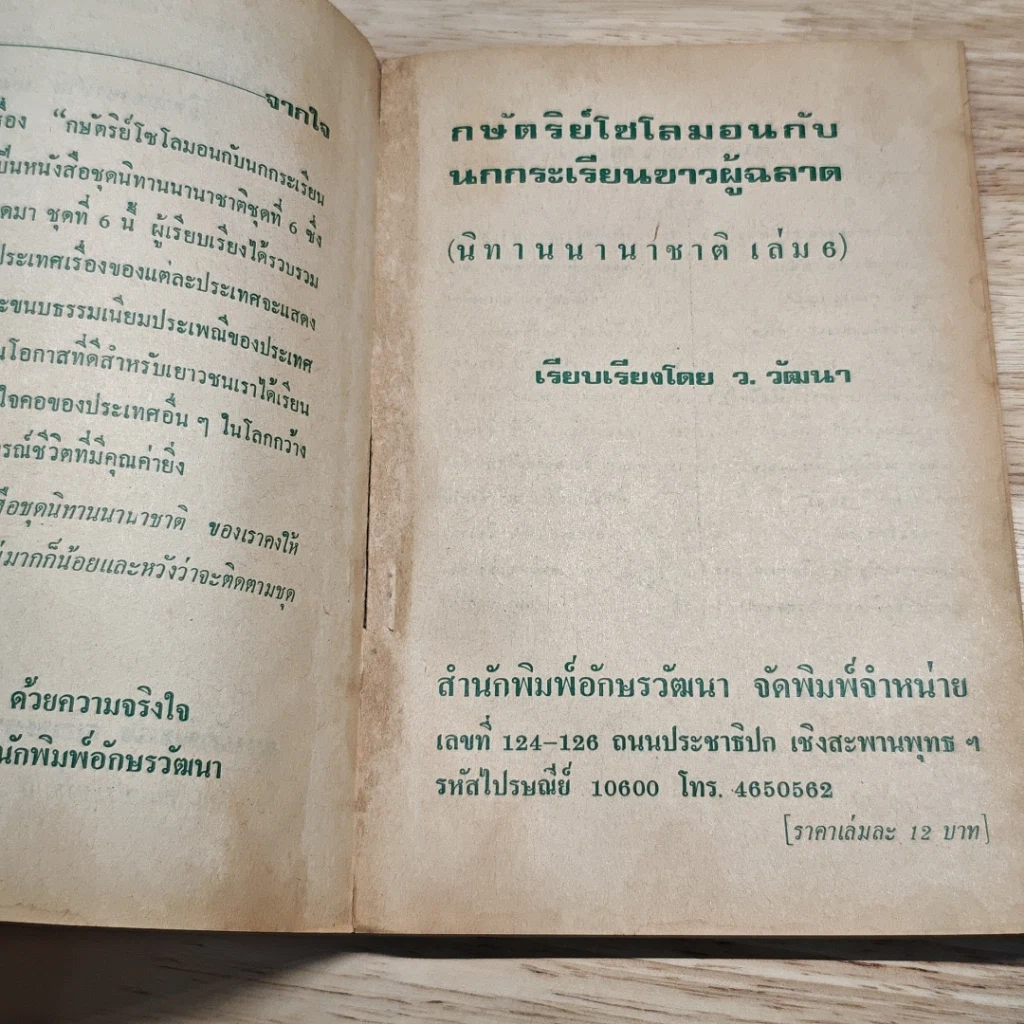 จากใจ
เรื่อง "กษัตริย์โซโลมอนกับนกกระเรียน
เป็นหนังสือชุดนิทานนานาชาติชุดที่ 6 ซึ่ง
ชุดที่ 6 นี้ ผู้เรียบเรียงได้รวบรวม
ประเทศเรื่องของแต่ละประเทศจะแสดง
ขนบธรรมเนียมประเพณีของประเทศ
โอกาสที่ดีสำหรับเยาวชนเราได้เรียน
ใจคอของประเทศอื่น ๆ ในโลกกว้าง
ชีวิตที่มีคุณค่ายิ่ง
ชุดนิทานนานาชาติ ของเราคงให้
มากก็น้อยและหวังว่าจะติดตามชุด
ด้วยความจริงใจ
สำนักพิมพ์อักษรวัฒนา
กษัตริย์โซโลมอนกับ
นกกระเรียนขาวผู้ฉลาด
(นิทานนานาชาติ เล่ม 6)
เรียบเรียงโดย ว. วัฒนา
สำนักพิมพ์อักษรวัฒนา จัดพิมพ์จำหน่าย
เลขที่ 124-126 ถนนประชาธิปก เชิงสะพานพุทธ ฯ
รหัสไปรษณีย์ 10600 โทร. 4650562
[ราคาเล่มละ 12 บาท]